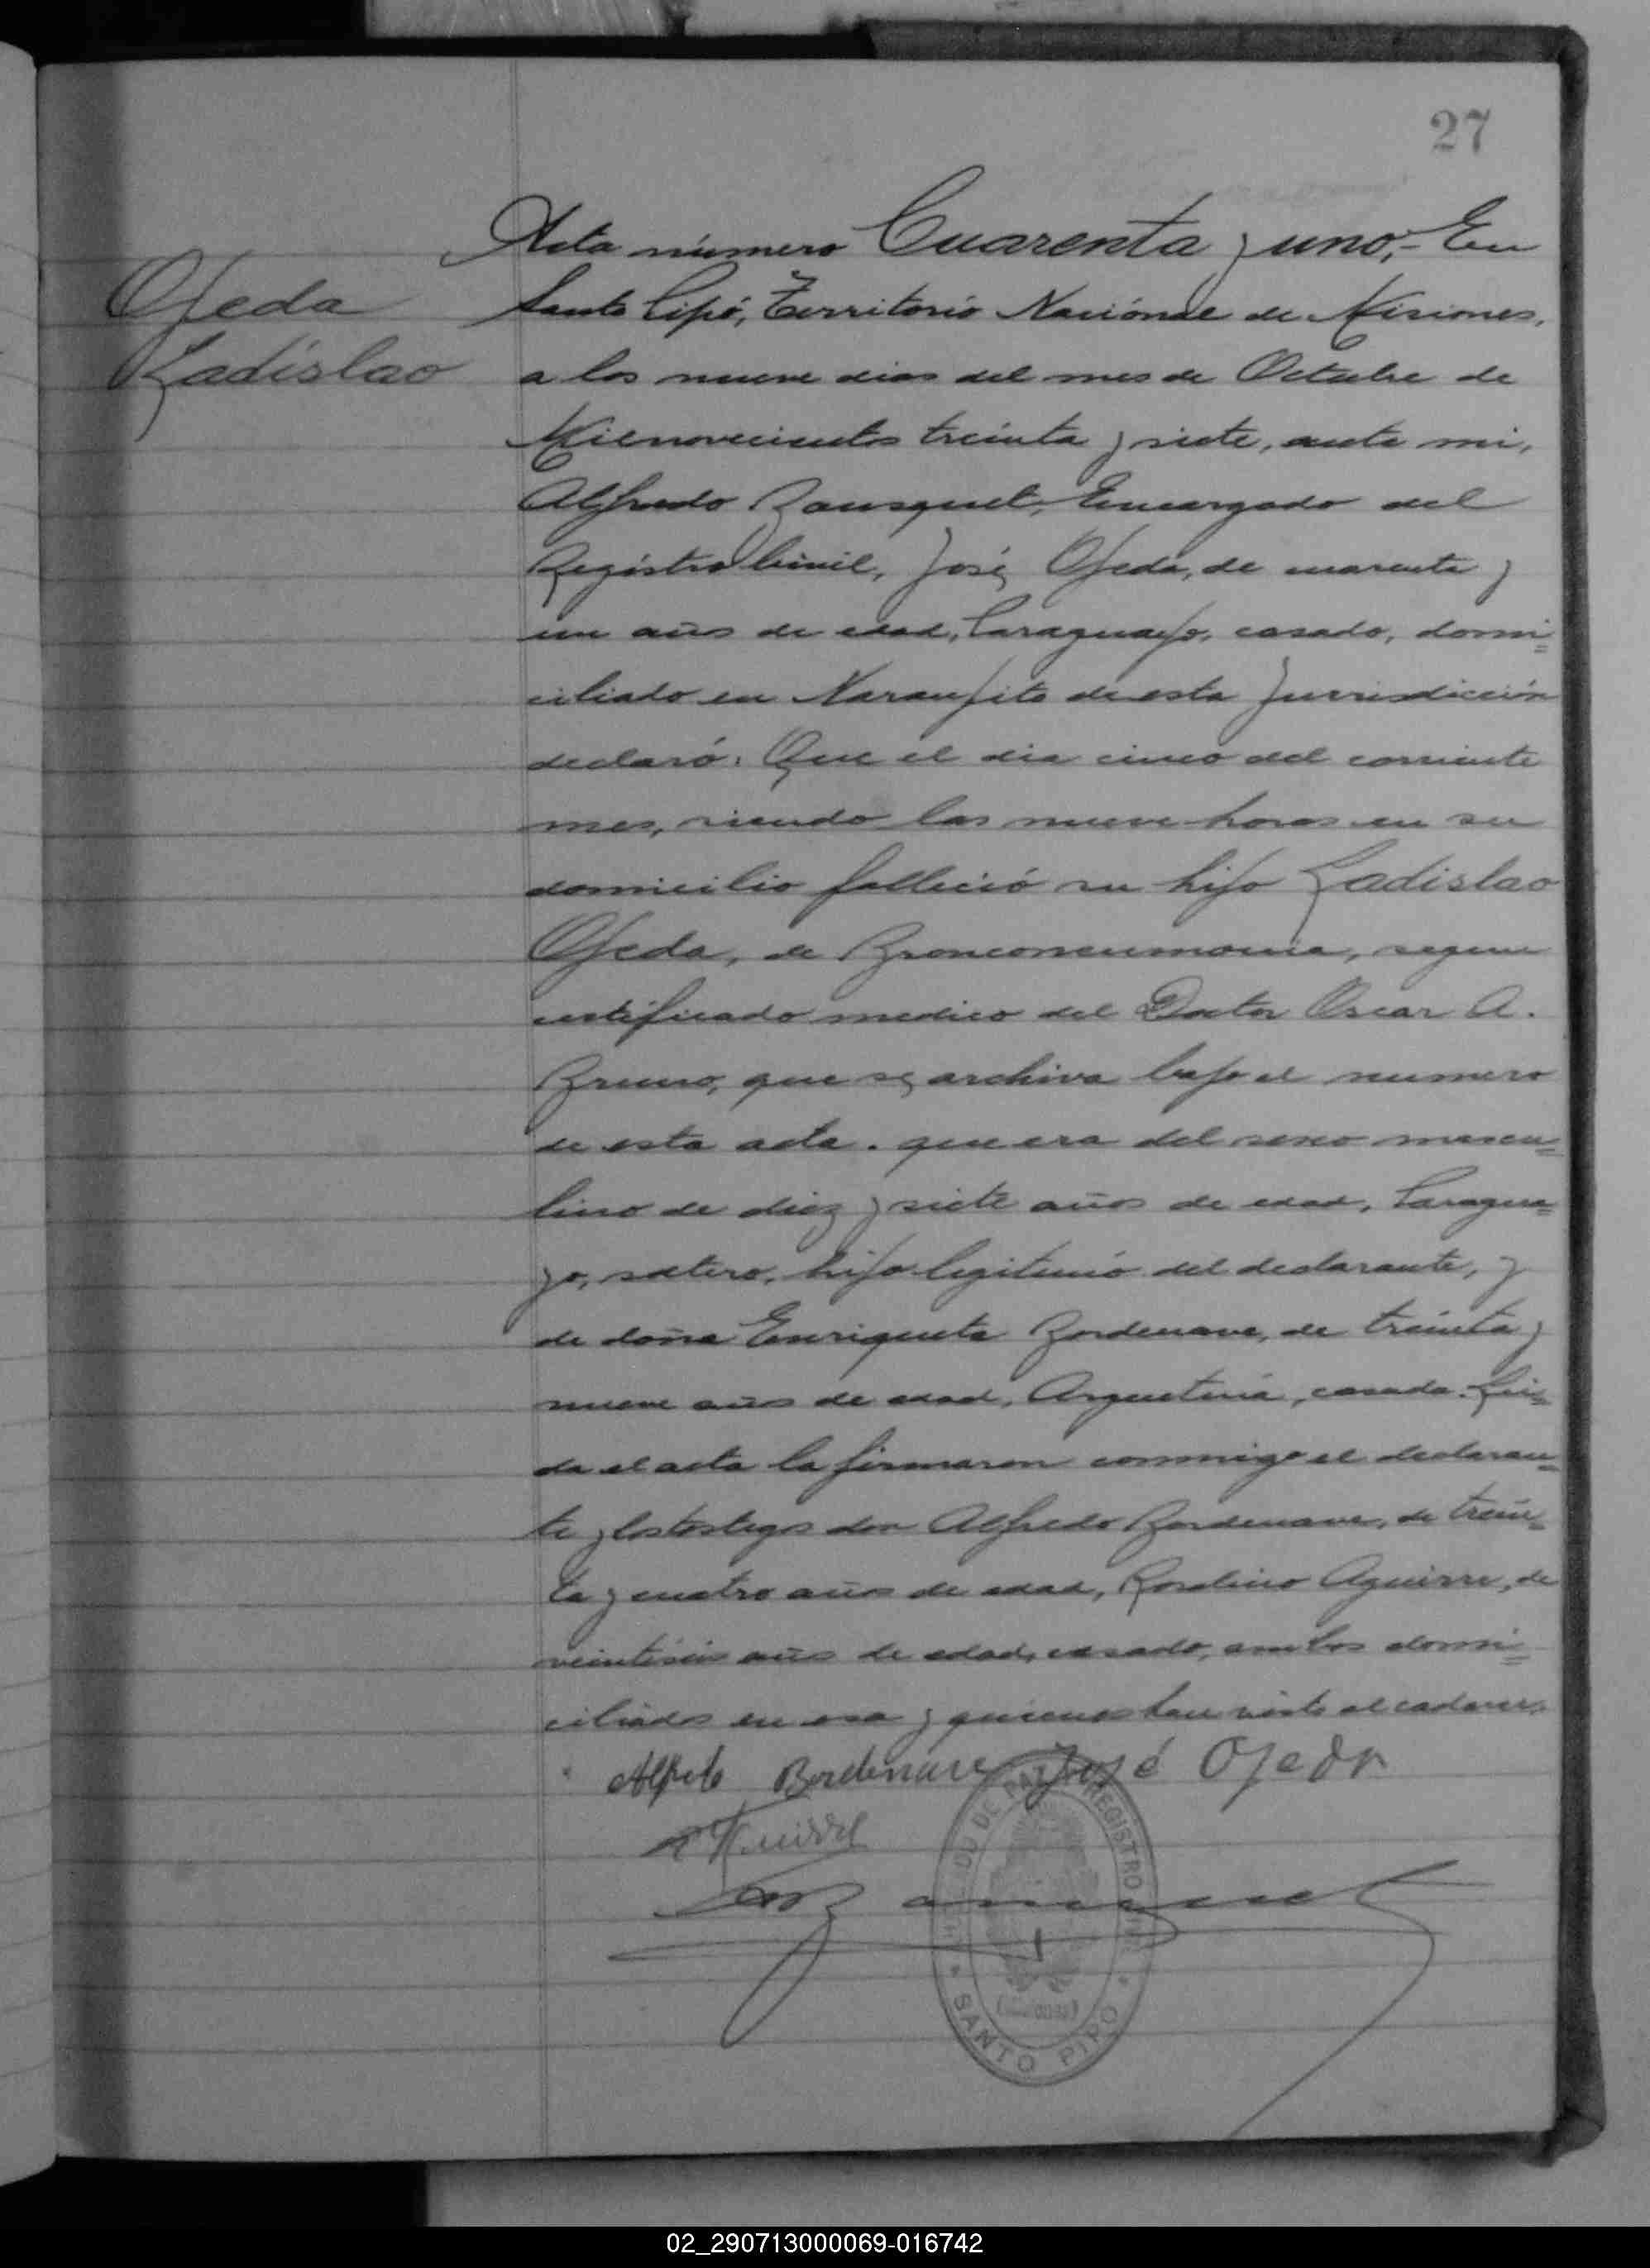 27
Acta número Cuarenta y uno,- En
Ojeda
Santo Pipó, Territorio Nacional de Misiones,
Ladislao
a los nueve dias del mes de Octubre de
Milnovecientos treinta y siete, ante mi,
Alfredo Bousquet, Encargado del
Registro Civil, José Ojeda, de cuarenta y
un años de edad, Paraguayo, casado, domi=
ciliado en Naranjito de esta Jurisdicción
declaró: Que el dia cinco del corriente
mes, siendo las nueve horas en su
domicilio falleció su hijo Ladislao
Ojeda, de Bronconeumonia, segun
certificado medico del Doctor Oscar A.
Bruno, que se archiva bajo el numero
de esta acta. que era del sexo mascu=
lino de diez y siete años de edad, Paragua=
yo, soltero, hijo legitimo del declarante, y
de doña Enriqueta Bordenave, de treinta y
nueve años de edad, Argentina, casada. Leí=
da el acta la firmaron conmigo el declaran=
te y los testigos don Alfredo Bordenave, de trein=
ta y cuatro años de edad, Rosalino Aguirre, de
veintiseis años de edad, casado, ambos domi=
ciliados en esa y quienes han visto el cadaver.
Alfredo Bordenave José Ojeda
DE PAZ REGISTRO
SANTO PIPO
02_290713000069-016742